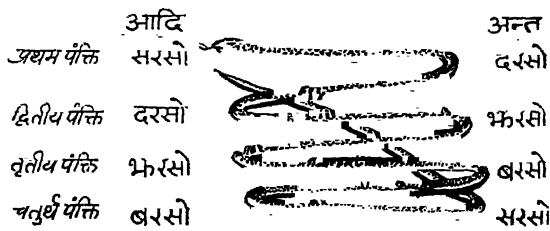 आदि अन्त
प्रथम पंक्ति सरसो दरसो
द्वितीय पंक्ति दरसो झरसो
तृतीय पंक्ति झरसो बरसो
चतुर्थ पंक्ति बरसो सरसो